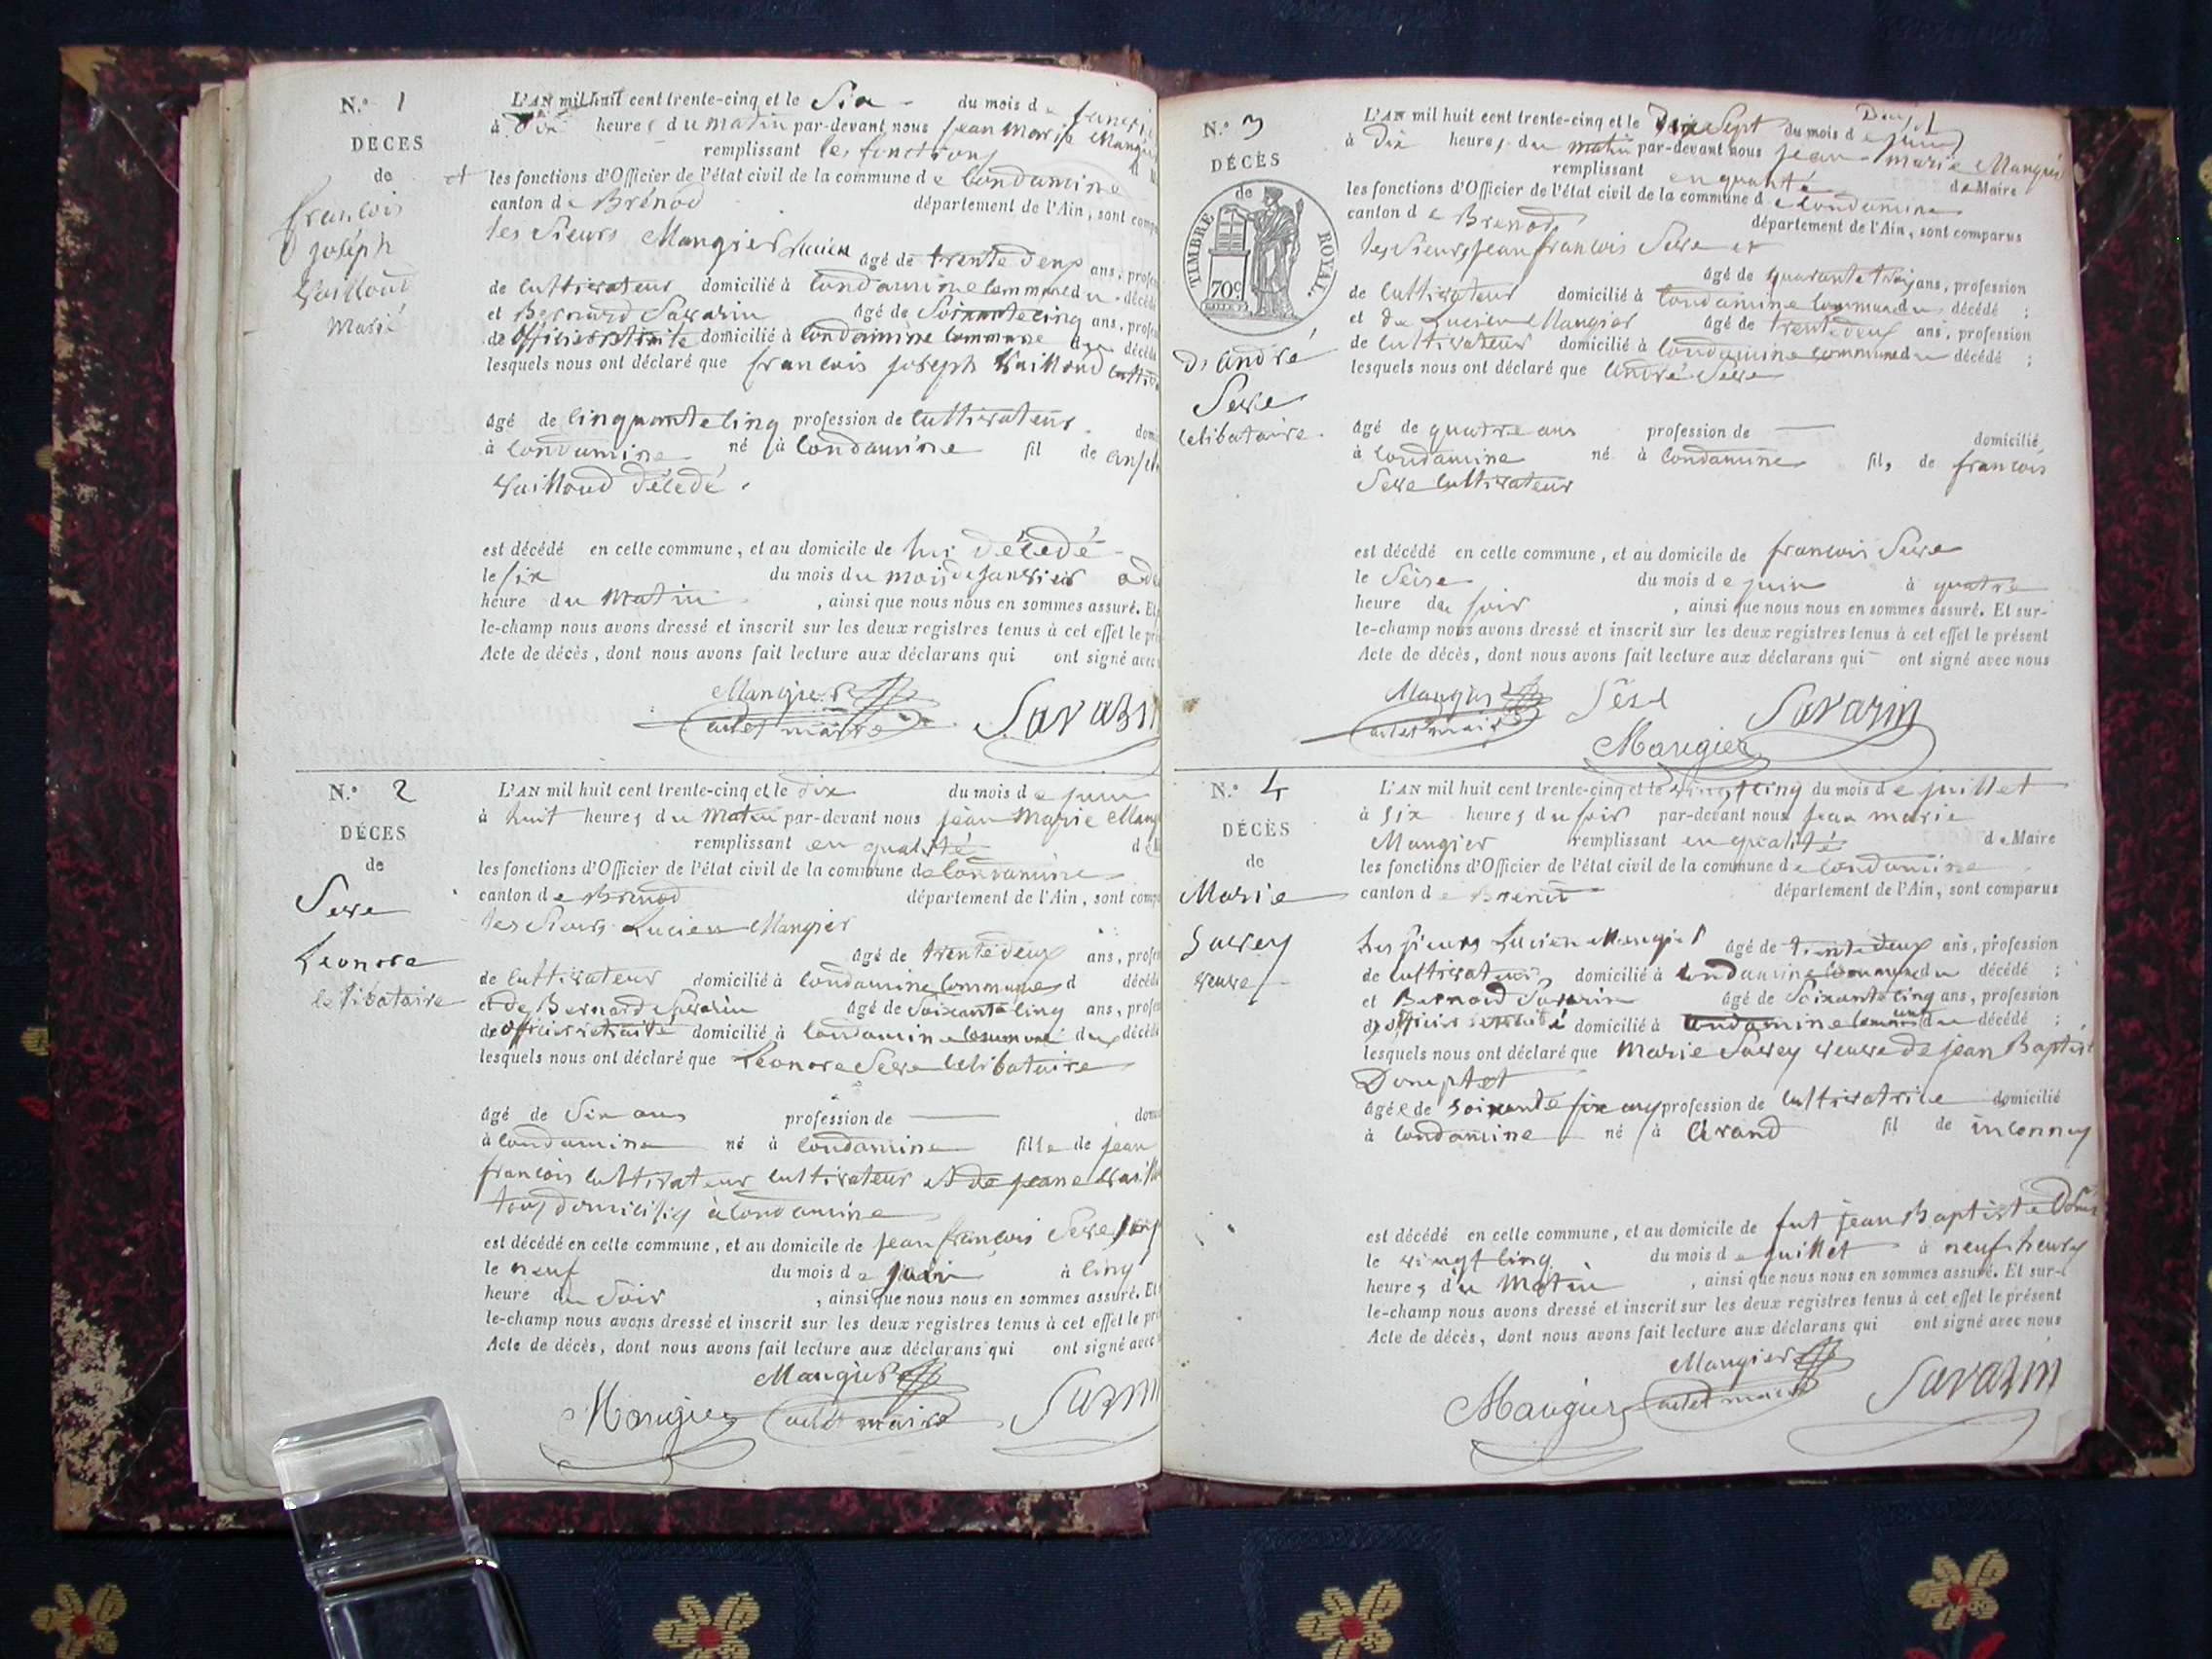 N.º 1
DÉCES
de
francois
joséph
Vailloud
Marié
L'AN mil huit cent trente-cinq et le Six du mois d
à Dix heures du matin par-devant nous jean Marie Mangi
remplissant les fonctions
les fonctions d'Officier de l'état civil de la commune de Condamine
canton de Brénod département de l'Ain, sont comp
les Sieurs Mangier Lucien agé de trente deux ans, profes
de Cultivateur domicilié à Condamine Commune du décédé
et Bernard Savarin agé de Soixante cinq ans, profes
de officier retraite domicilié à Condamine Commune du décédé
lesquels nous ont déclaré que francois joseph Vailloud
agé de Cinquante Cinq profession de Cultivateur dom
à Condamine né à Condamine fil de
Vailloud décédé
est décédé en celle commune, et au domicile de lui décedé
le six du mois du mois de janvier
heure du matin, ainsi que nous nous en sommes assuré. Et
le-champ nous avons dressé et inscrit sur les deux registres tenus à cet effet le pré
Acte de décès, dont nous avons fait lecture aux déclarans qui ont signé avec
Mangier Savarin
maire
N.º 2
DÉCES
de
Seve
Leonore
Celibataire
L'AN mil huit cent trente-cinq et le dix du mois de juin
à huit heures du Matin par-devant nous jean Marie Mang
remplissant en qualité d
les fonctions d'Officier de l'état civil de la commune de Condamine
canton de Brenod département de l'Ain, sont comp
les Sieurs Lucien Mangier
agé de trente deux ans, profes
de Cultivateur domicilié à Condamine Commune d décédé
et de Bernard Savarin agé de Soixante Cinq ans, profes
de officier retraité domicilié à Condamine Commune du décédé
lesquels nous ont déclaré que Leonore Seve Celibataire
agé de Six ans profession de — dom
à Condamine né à Condamine fille de jean
francois Cultivateur Cultivateur et de jeane
tous domiciliés à Condamine
est décédé en celle commune, et au domicile de jean francois Seve
le neuf du mois de juin à Cinq
heure du Soir, ainsi que nous nous en sommes assuré. Et
le-champ nous avons dressé et inscrit sur les deux registres tenus à cet effet le pré
Acte de décès, dont nous avons fait lecture aux déclarans qui ont signé avec
Mangier
Mangier maire
N.º 3
DÉCÈS
de
TIMBRE ROYAL.
70c
D'andré
Seve
Celibataire.
L'AN mil huit cent trente-cinq et le Dix Sept du mois de juin
à Dix heures du matin par-devant nous jean marie Mangier
remplissant en qualité de Maire
les fonctions d'Officier de l'état civil de la commune de Condamine
canton de Brenod département de l'Ain, sont comparus
les Sieurs jean francois Seve et
agé de quarante trois ans, profession
de Cultivateur domicilié à Condamine Commune du décédé ;
et de Lucien Mangier agé de trente deux ans, profession
de Cultivateur domicilié à Condamine Commune du décédé ;
lesquels nous ont déclaré que André Seve
agé de quatre ans profession de — domicilié
à Condamine né à Condamine fils de francois
Seve Cultivateur
est décédé en celle commune, et au domicile de francois Seve
le Seise du mois de juin à quatre
heure du soir, ainsi que nous nous en sommes assuré. Et sur-
le-champ nous avons dressé et inscrit sur les deux registres tenus à cet effet le présent
Acte de décès, dont nous avons fait lecture aux déclarans qui ont signé avec nous
Mangier Savarin
maire
Mangier
N.º 4
DÉCÈS
de
Marie
Savey
veuve
L'AN mil huit cent trente-cinq et le vingt Cinq du mois de juillet
à six heures du soir par-devant nous jean marie
Mangier remplissant en qualité de Maire
les fonctions d'Officier de l'état civil de la commune de Condamine
canton de Brenod département de l'Ain, sont comparus
les Sieurs Lucien Mangier agé de trente deux ans, profession
de Cultivateur domicilié à Condamine Commune du décédé ;
et Bernard Savarin agé de Soixante Cinq ans, profession
d'officier retraité domicilié à Condamine Commune du décédé ;
lesquels nous ont déclaré que Marie Savey veuve de jean Baptist
Domptet
agée de Soixante six ans profession de Cultivatrice domicilié
à Condamine né à Chvand fil de inconnus
est décédé en celle commune, et au domicile de fut jean Baptiste
le vingt Cinq du mois de juillet à neuf heures
heures du Matin, ainsi que nous nous en sommes assuré. Et sur-
le-champ nous avons dressé et inscrit sur les deux registres tenus à cet effet le présent
Acte de décès, dont nous avons fait lecture aux déclarans qui ont signé avec nous
Mangier
Mangier maire Savarin